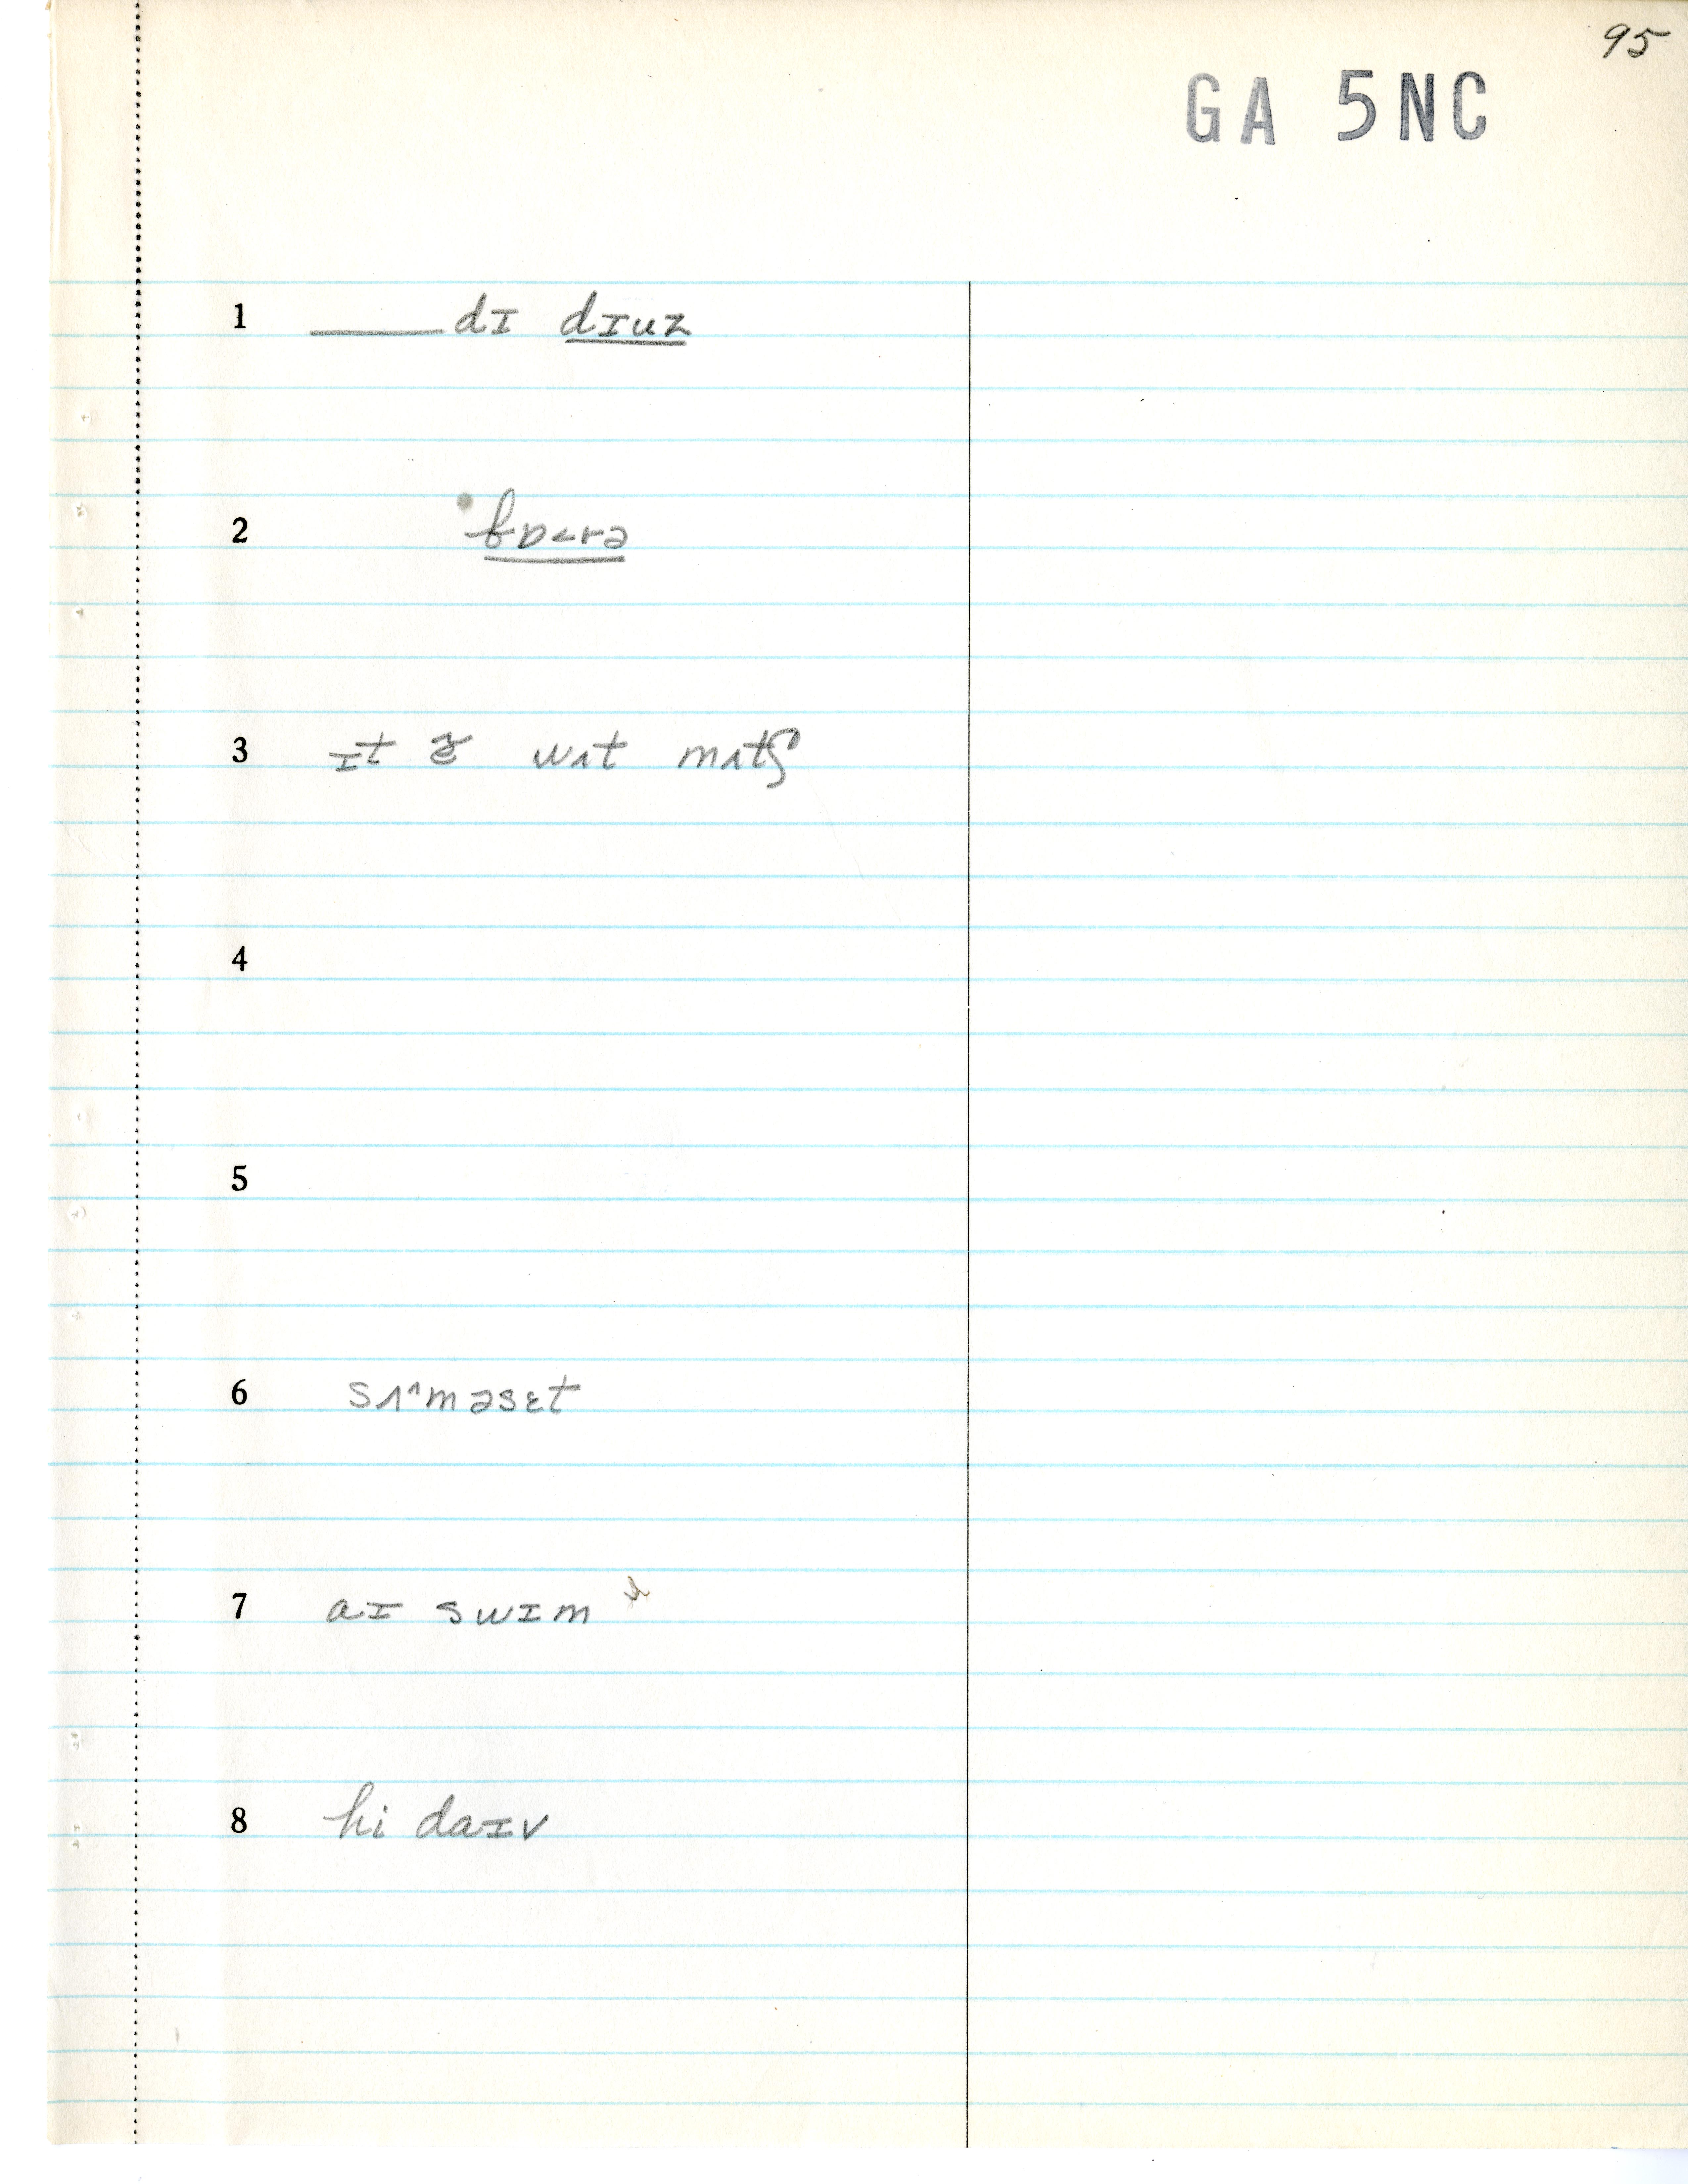 95
GA 5NC
1 ____ dɪ dɪuz
2
3 ɪt wʌt mʌtʃ
4
5
6 sʌ^məsɛt
7 aɪ swɪm
8 hi daɪv